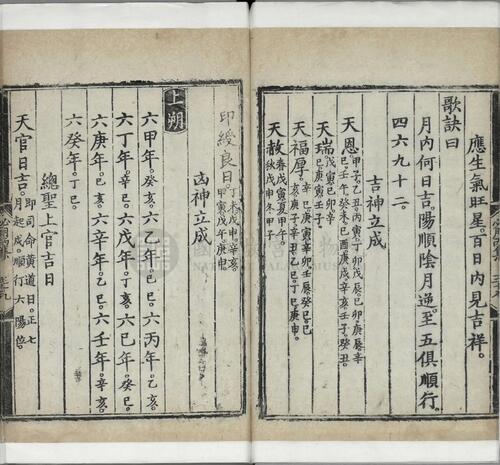 應生氣旺星。百日內見吉祥。
歌訣曰
月內何日吉陽順陰月逆。至五俱順行。
四六九十二。
吉神立成
天恩甲子乙丑丙寅丁卯戊辰己卯庚辰辛
巳壬午癸未己酉庚戌辛亥壬子癸丑。
天瑞戊寅己卯辛
巳庚寅壬子。
天福
天赦春戊寅夏甲午。
秋戊申冬甲子
印綬良日
凶神立成
上朔
六甲年。癸亥。六乙年。己巳。六丙年。乙亥。
六丁年。辛巳。六戊年。丁亥。六己年。癸巳。
六庚年。己亥。六辛年。乙亥。六壬年。辛亥。
六癸年。丁巳。
總聖上官吉日
天官日吉。即司命黃道日。正七
月起戌。順行六陽位。